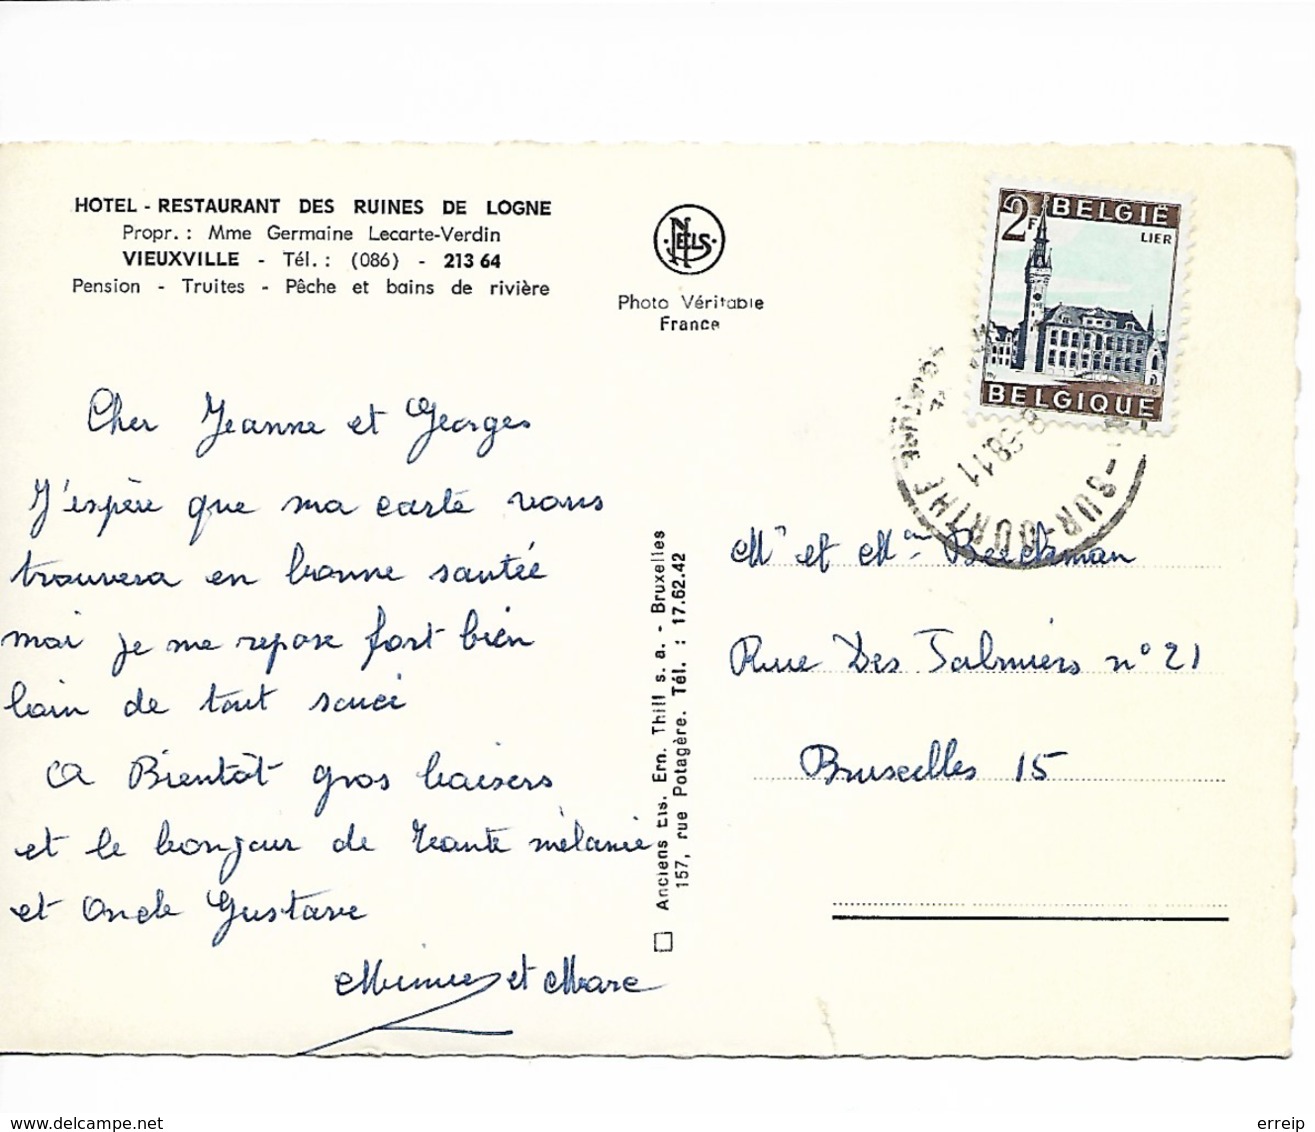 HOTEL - RESTAURANT DES RUINES DE LOGNE
Propr. : Mme Germaine Lecarte-Verdin
VIEUXVILLE - Tél. : (086) - 213 64
Pension - Truites - Pêche et bains de rivière
NELS
Photo Véritable
France
2F BELGIË
LIER
BELGIQUE
-SUR-OURTHE
8-68.11
Cher Jeanne et Georges
J'espère que ma carte vous
trouvera en bonne santée
moi je me repose fort bien
loin de tout souci
A Bientôt gros baisers
et le bonjour de Tante mélanie
et Oncle Gustave
et Marc
Anciens Ets. Ern. Thill s. a. - Bruxelles
157, rue Potagère. Tél. : 17.62.42
Mr et Mme Beeckman
Rue Des Palmiers n° 21
Bruxelles 15
www.delcampe.net
erreip